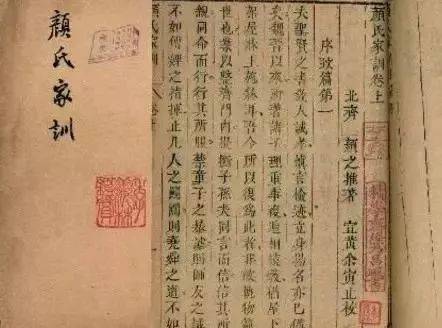 顏氏家訓卷上
北齊 顏之推著 宜黃余寅止校
序致篇第一
夫聖賢之書教人誠孝慎言檢迹立身揚名亦已備
矣魏晉以來所著諸子理重事複遞相模斆猶屋下
架屋牀上施牀耳吾今所以復爲此者非敢軌物範
世也業以整齊門內提撕子孫夫同言而信信其所
親同命而行行其所服禁童子之暴謔則師友之誡
不如傅婢之指揮止凡人之鬬鬩則堯舜之道不如
顏氏家訓
顏氏家訓